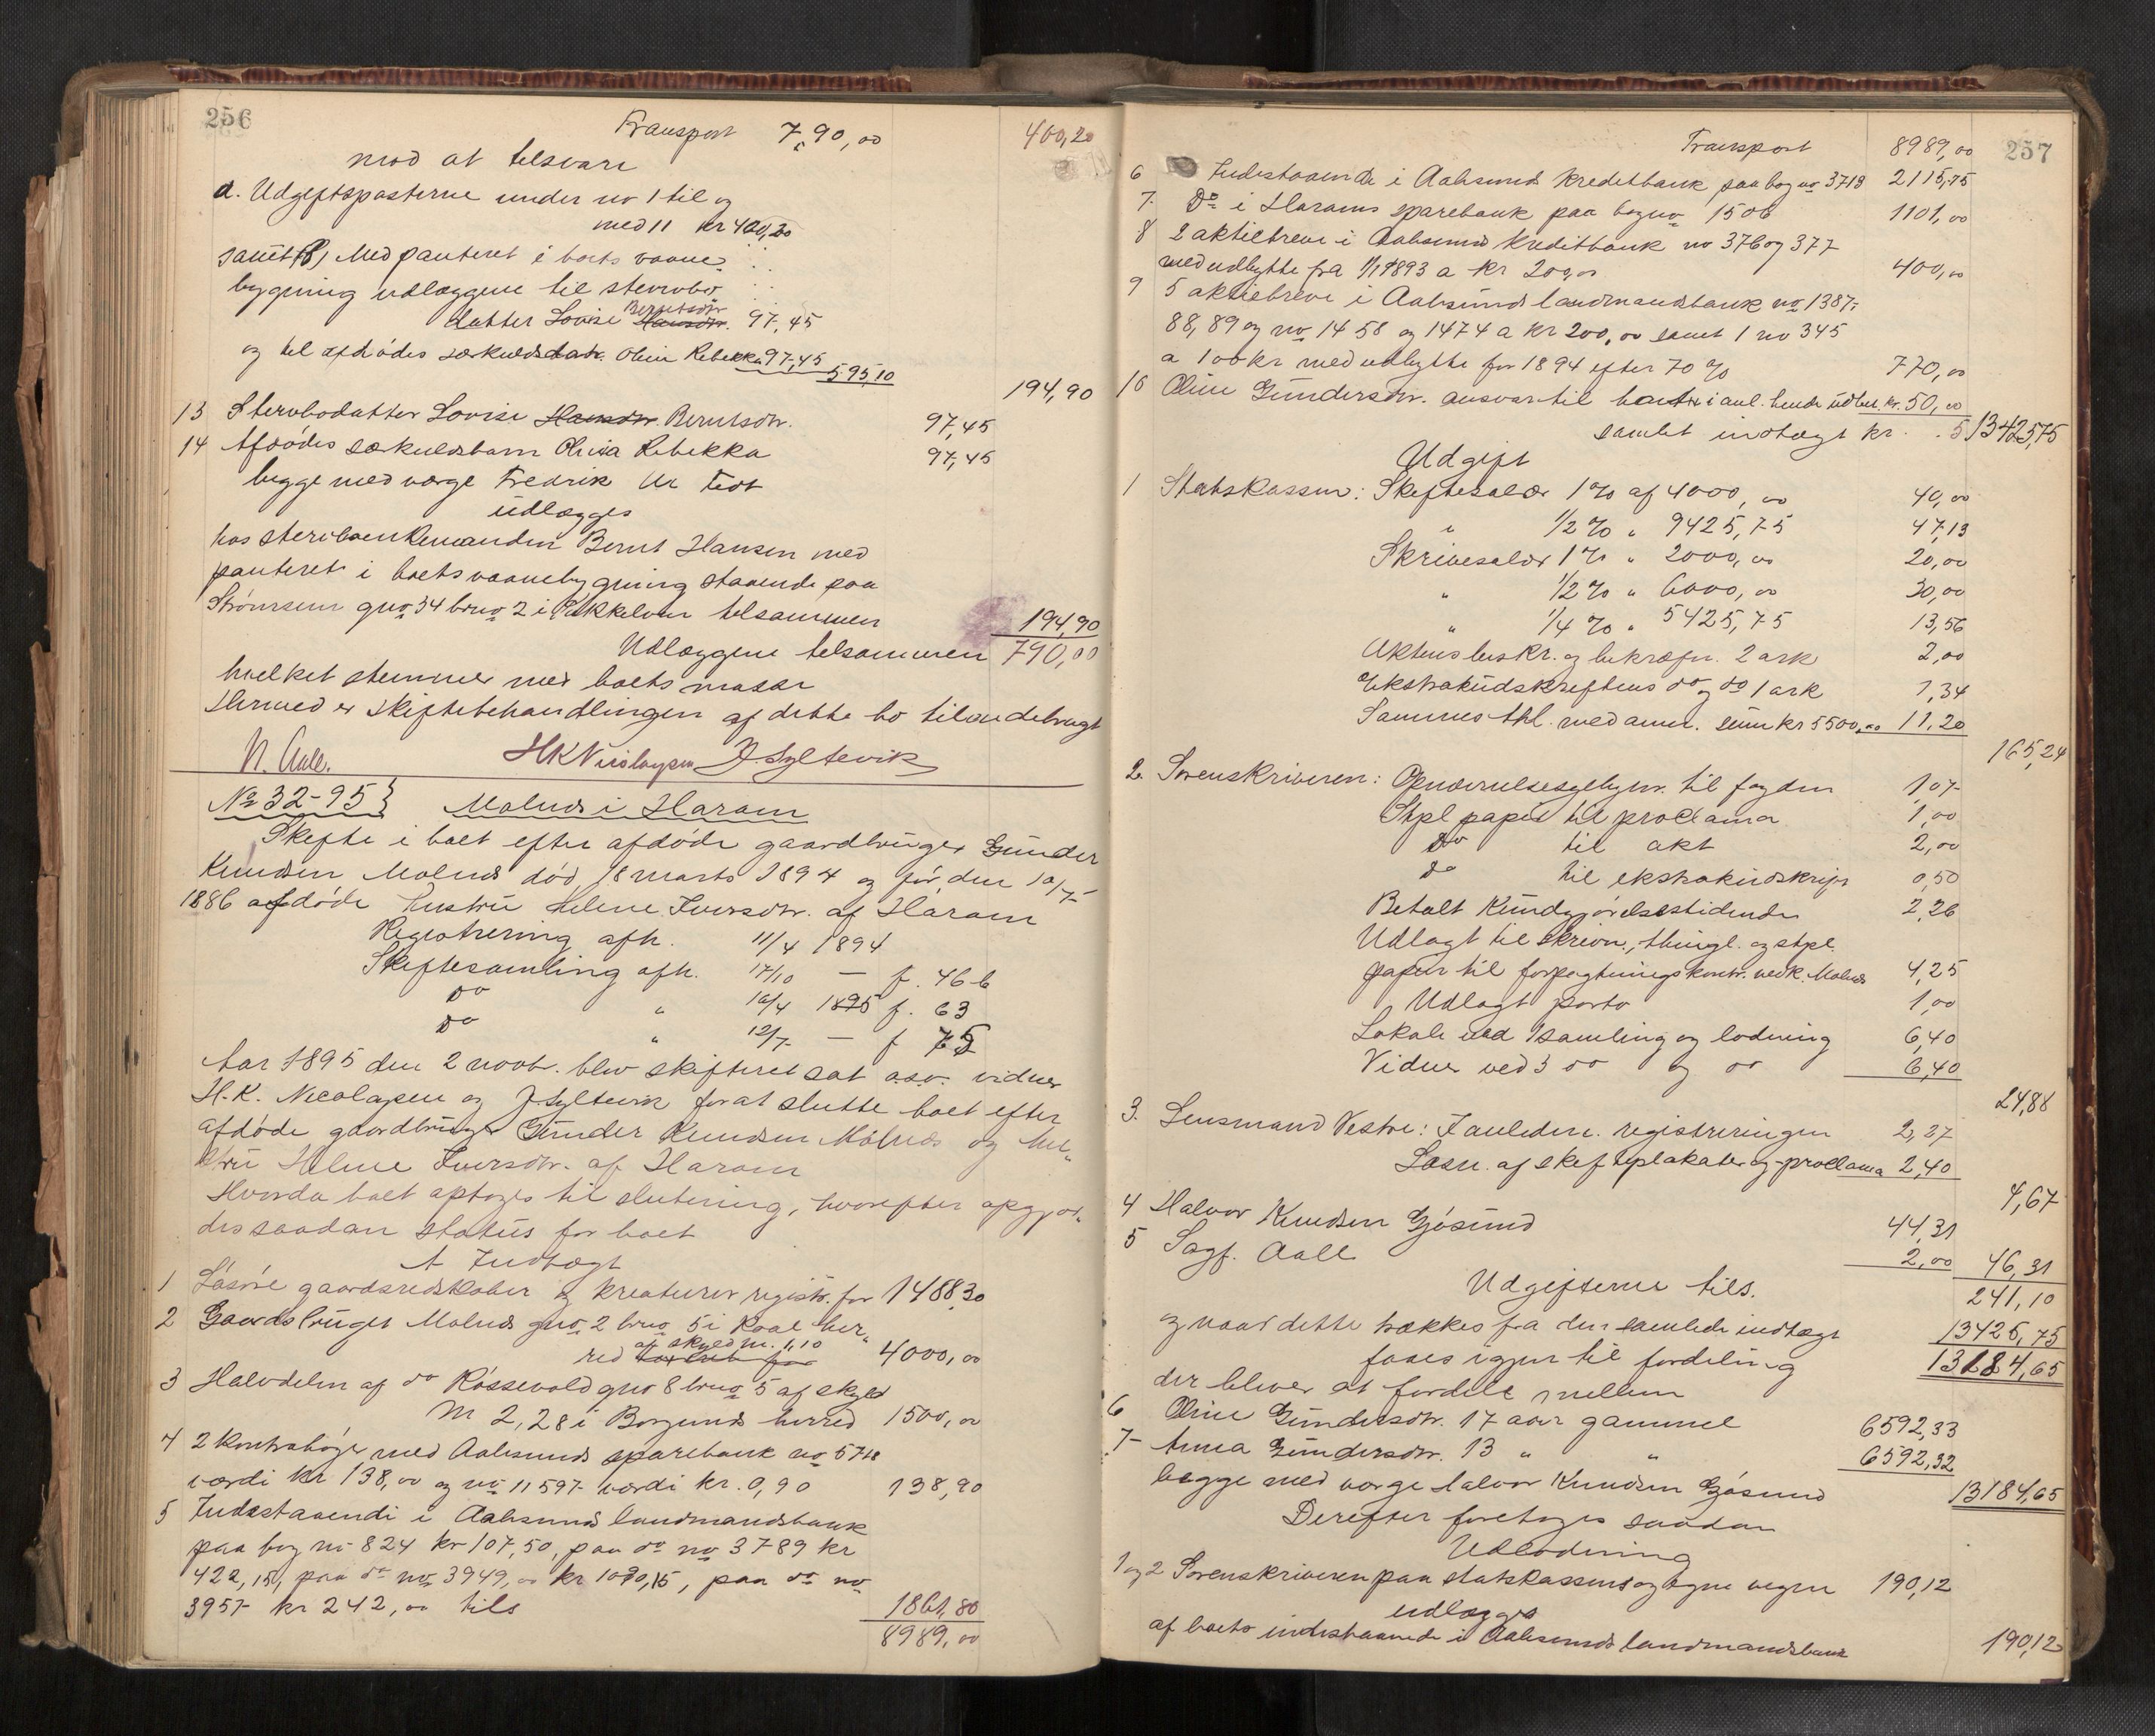 256
Transport 790,00 400,20
mod at tilsvare
a. Udgiftsposterne under no 1 til og
med 11 kr 400,20
samt B, Med panteret i boets vaane-
bygning udlæggene til stervbo
datter Lovise Hansdtr. Berntsdtr 97,45
og til afdødes særkuldsdatr. Oline Rebekka 97,45 595,10
194,90
13 Stervbodatter Lovise Hansdtr. Berntsdtr. 97,45
14 Afdødes særkuldsbarn Oline Rebekka 97,45
begge med værge Fredrik
udlægges
hos stervboenkemanden Bernt Hansen med
panteret i boets vaanebygning staaende paa
Strømmen gno 34 brno 2 i tilsammen 194,90
Udlæggene tilsammen 790,00
hvilket stemmer med boets masse
Hermed er skiftebehandlingen af dette bo tilendebragt
N. Aall. HKNicolaysen J. Syltevik
No 32-95 Molnes i Haram
Skifte i boet efter afdøde gaardbruger Gunder
Knudsen Molnes død 18 marts 1894 og før, den 10/7
1886 afdøde hustru Helene Iversdtr. af Haram
Registrering afh. 11/4 1894
Skiftesamling afh. 17/10 — f. 46 b
do " 16/4 1895 f. 63
do " 12/7 — f 75
Aar 1895 den 2 novbr. blev skifteret sat a.s.v. vidner
H.K. Nicolaysen og J. Syltevik for at slutte boet efter
afdøde gaardbruger Gunder Knudsen Molnes og hu-
stru Helene Iversdtr. af Haram
Hvorda boet optoges til slutning, hvorefter opgjor-
des saadan status for boet
A Indtægt
1 Løsøre gaardsredskaber og kreaturer registr. for 1488,30
2 Gaardsbruget Molnes gno 2 brno 5 i Roal her-
red af skyld m. 1,10 4000,00
3 Halvdelen af do Røssevold gno 8 brno 5 af skyld
M 2,28 i Borgunds herred 1500,00
4 2 kontrabøger med Aalesunds sparebank no 5718
værdi kr 138,00 og no 11597 værdi kr. 0,90 138,90
5 Indestaaende i Aalesunds landmandsbank
paa bog no 824 kr 107,50, paa do no 3789 kr
422,15, paa do no 3949,00 kr 1090,15, paa do no
3957 kr 242,00 tils 1861,80
8989,00
257
Transport 8989,00
6 Indestaaende i Aalesunds kreditbank paa bog no 3718 2115,75
7. Do i Harams sparebank paa bog no 1506 1101,00
8 2 aktiebreve i Aalesunds kreditbank no 376 og 377
med udbytte fra 1/1 1893 a kr 200,00 400,00
9 5 aktiebreve i Aalesunds landmandsbank no 1387-
88, 89 og no 1458 og 1474 a kr 200,00 samt 1 no 345
a 100 kr med udbytte for 1894 efter 70% 770,00
10 Oline Gundersdtr. ansvar til boet i anl. hendes udbet. kr. 50,00
samlet indtægt kr. 13425,75
Udgift
1 Statskassen: Skiftesalær 1% af 4000,00 40,00
" 1/2% " 9425,75 47,13
Skrivesalær 1% " 2000,00 20,00
" 1/2% " 6000,00 30,00
" 1/4% " 5425,75 13,56
Aktens beskr. og bekræfn. 2 ark 2,00
Ekstraktudskriftens do og do 1 ark 1,34
Sammes thl. med anm. sum kr 5500,00 11,20
165,24
2. Sorenskriveren: Opnævnelsesgebyr. til fogden 1,07
Stpl papir til proclama 1,00
do til akt 2,00
do til ekstraktudskrift 0,50
Betalt Kundgjørelsestidende 2,26
Udlagt til skrivn., thingl. og stpl.
papir til forpagtningskontr. vedk. Molnes 4,25
Udlagt porto 1,00
Lokale ved samling og lodning 6,40
Vidner ved 3 do og do 6,40
24,88
3. Lensmand Vestre: I anledn. registreringen 2,27
Læsn. af skifteplakater og -proclama 2,40
4,67
4 Halvor Knudsen Gjøsund 44,31
5 Sagf. Aall 2,00 46,31
Udgifterne tils. 241,10
og naar dette trækkes fra den samlede indtægt 13425,75
faaes igjen til fordeling 13184,65
der bliver at fordele mellem
6 Oline Gundersdtr. 17 aar gammel 6592,33
7- Anna Gundersdtr. 13 " " 6592,32
begge med værge Halvor Knudsen Gjøsund 13184,65
Derefter foretoges saadan
Udlodning
1 og 2 Sorenskriveren paa statskassens og egne vegne 190,12
udlægges
af boets indestaaende i Aalesunds landmandsbank 190,12